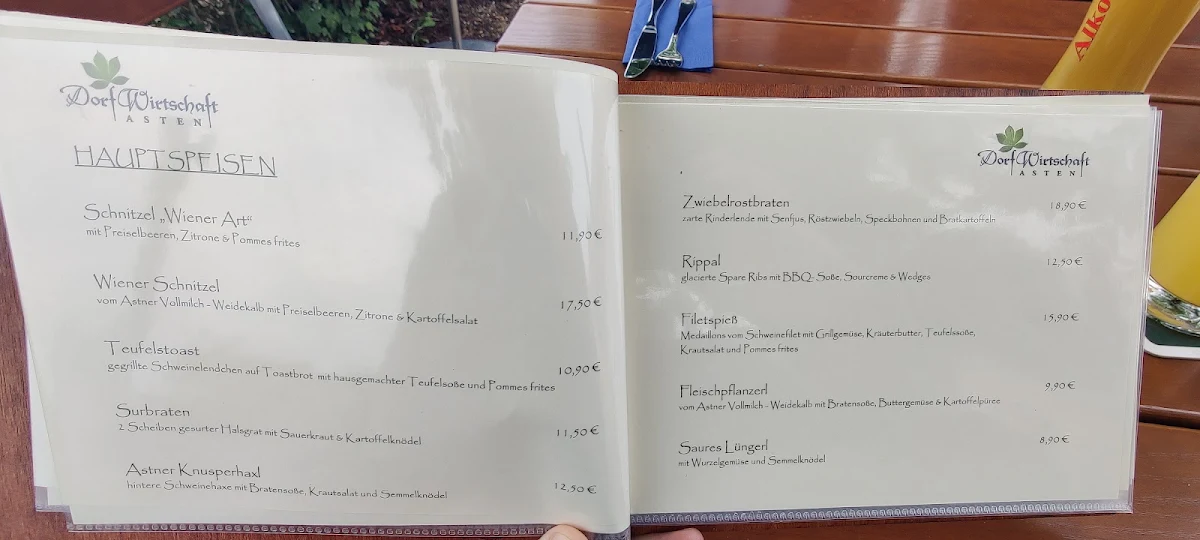 Dorf Wirtschaft
ASTEN
HAUPTSPEISEN
Schnitzel „Wiener Art“
mit Preiselbeeren, Zitrone & Pommes frites 11,90 €
Wiener Schnitzel
vom Astner Vollmilch - Weidekalb mit Preiselbeeren, Zitrone & Kartoffelsalat 17,50 €
Teufelstoast
gegrillte Schweinelendchen auf Toastbrot mit hausgemachter Teufelsoße und Pommes frites 10,90 €
Surbraten
2 Scheiben gesurter Halsgrat mit Sauerkraut & Kartoffelknödel 11,50 €
Astner Knusperhaxl
hintere Schweinehaxe mit Bratensoße, Krautsalat und Semmelknödel 12,50 €
Dorf Wirtschaft
ASTEN
Zwiebelrostbraten 18,90 €
zarte Rinderlende mit Senfjus, Röstzwiebeln, Speckbohnen und Bratkartoffeln
Rippal 12,50 €
glacierte Spare Ribs mit BBQ- Soße, Sourcreme & Wedges
Filetspieß 15,90 €
Medaillons vom Schweinefilet mit Grillgemüse, Kräuterbutter, Teufelssoße,
Krautsalat und Pommes frites
Fleischpflanzerl 9,90 €
vom Astner Vollmilch - Weidekalb mit Bratensoße, Buttergemüse & Kartoffelpüree
Saures Lüngerl 8,90 €
mit Wurzelgemüse und Semmelknödel
Alko